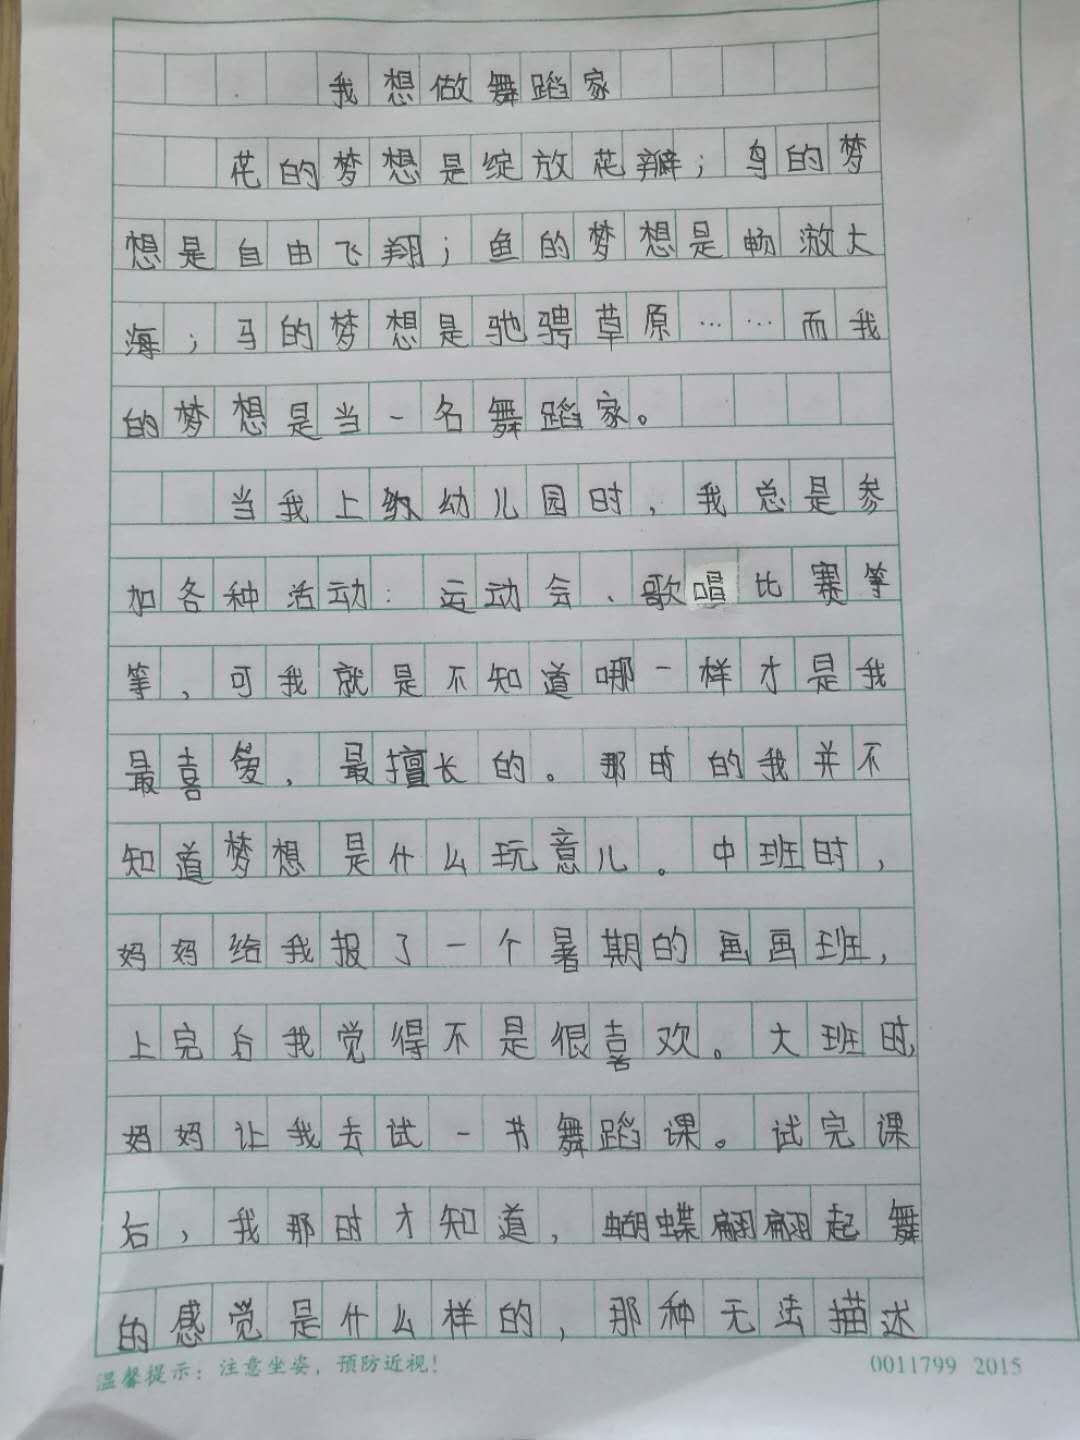 我想做舞蹈家
花的梦想是绽放花瓣；鸟的梦
想是自由飞翔；鱼的梦想是畅激大
海；马的梦想是驰骋草原……而我
的梦想是当一名舞蹈家。
当我上幼儿园时，我总是参
加各种活动：运动会、歌唱比赛等
等，可我就是不知道哪一样才是我
最喜爱，最擅长的。那时的我并不
知道梦想是什么玩意儿。中班时，
妈妈给我报了一个暑期的画画班，
上完后我觉得不是很喜欢。大班时，
妈妈让我去试一节舞蹈课。试完课
后，我那时才知道，蝴蝶翩翩起舞
的感觉是什么样的，那种无法描述
温馨提示：注意坐姿，预防近视！
0011799 2015